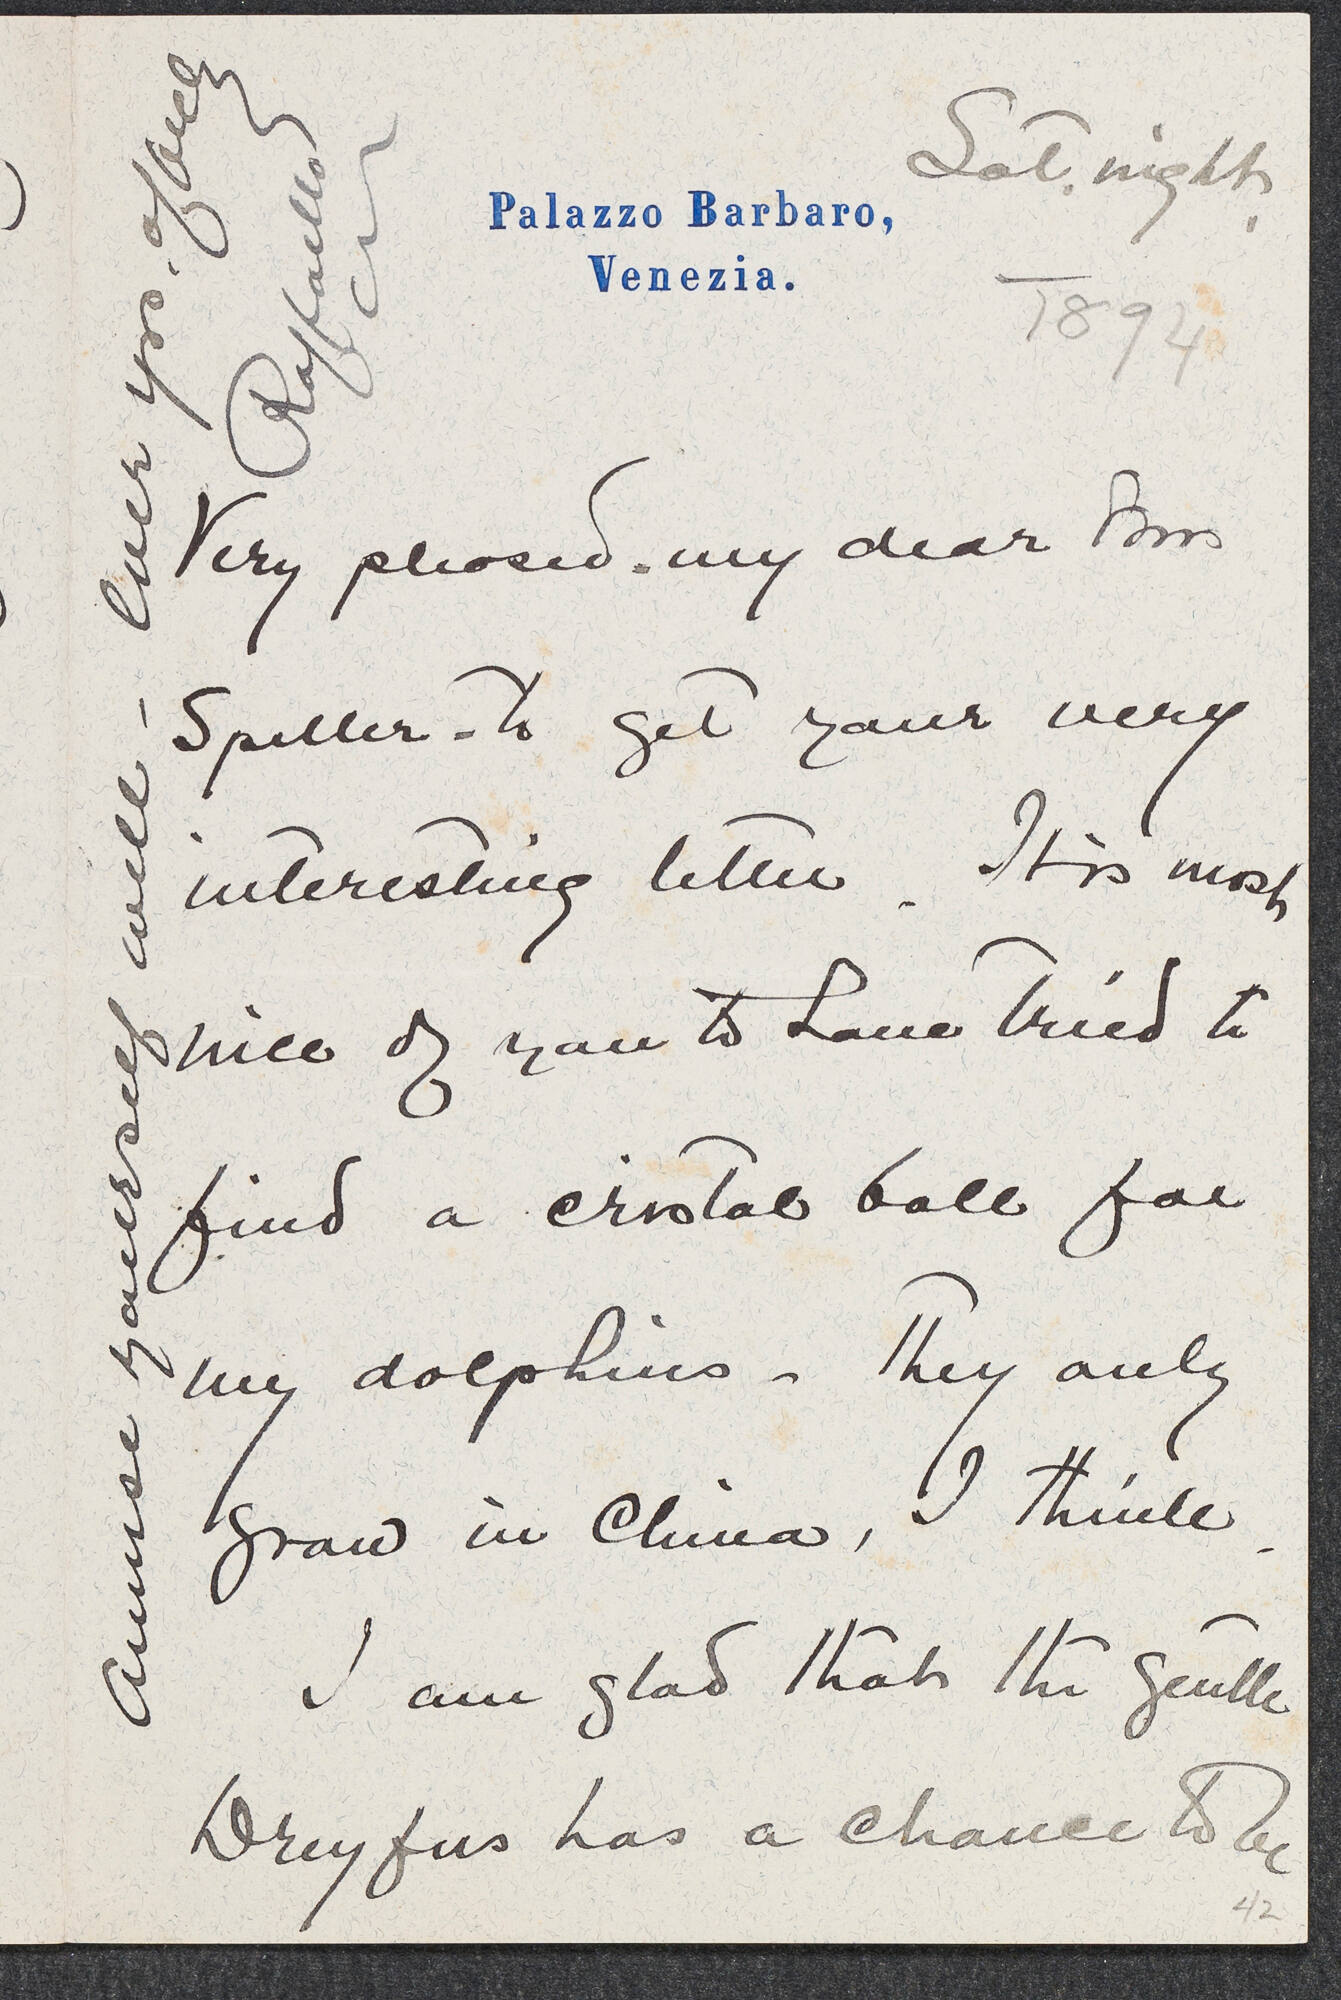 Sat. night.
Palazzo Barbaro,
Venezia.
1894
Very pleased - my dear Mrs
Speller - to get your very
interesting letter. It is most
nice of you to have tried to
find a cristal ball for
my dolphins - They only
grow in China, I think.
I am glad that the gentle
Dreyfus has a chance to be
42
Amuse yourself well - Ever yrs. affncly
Raffaello